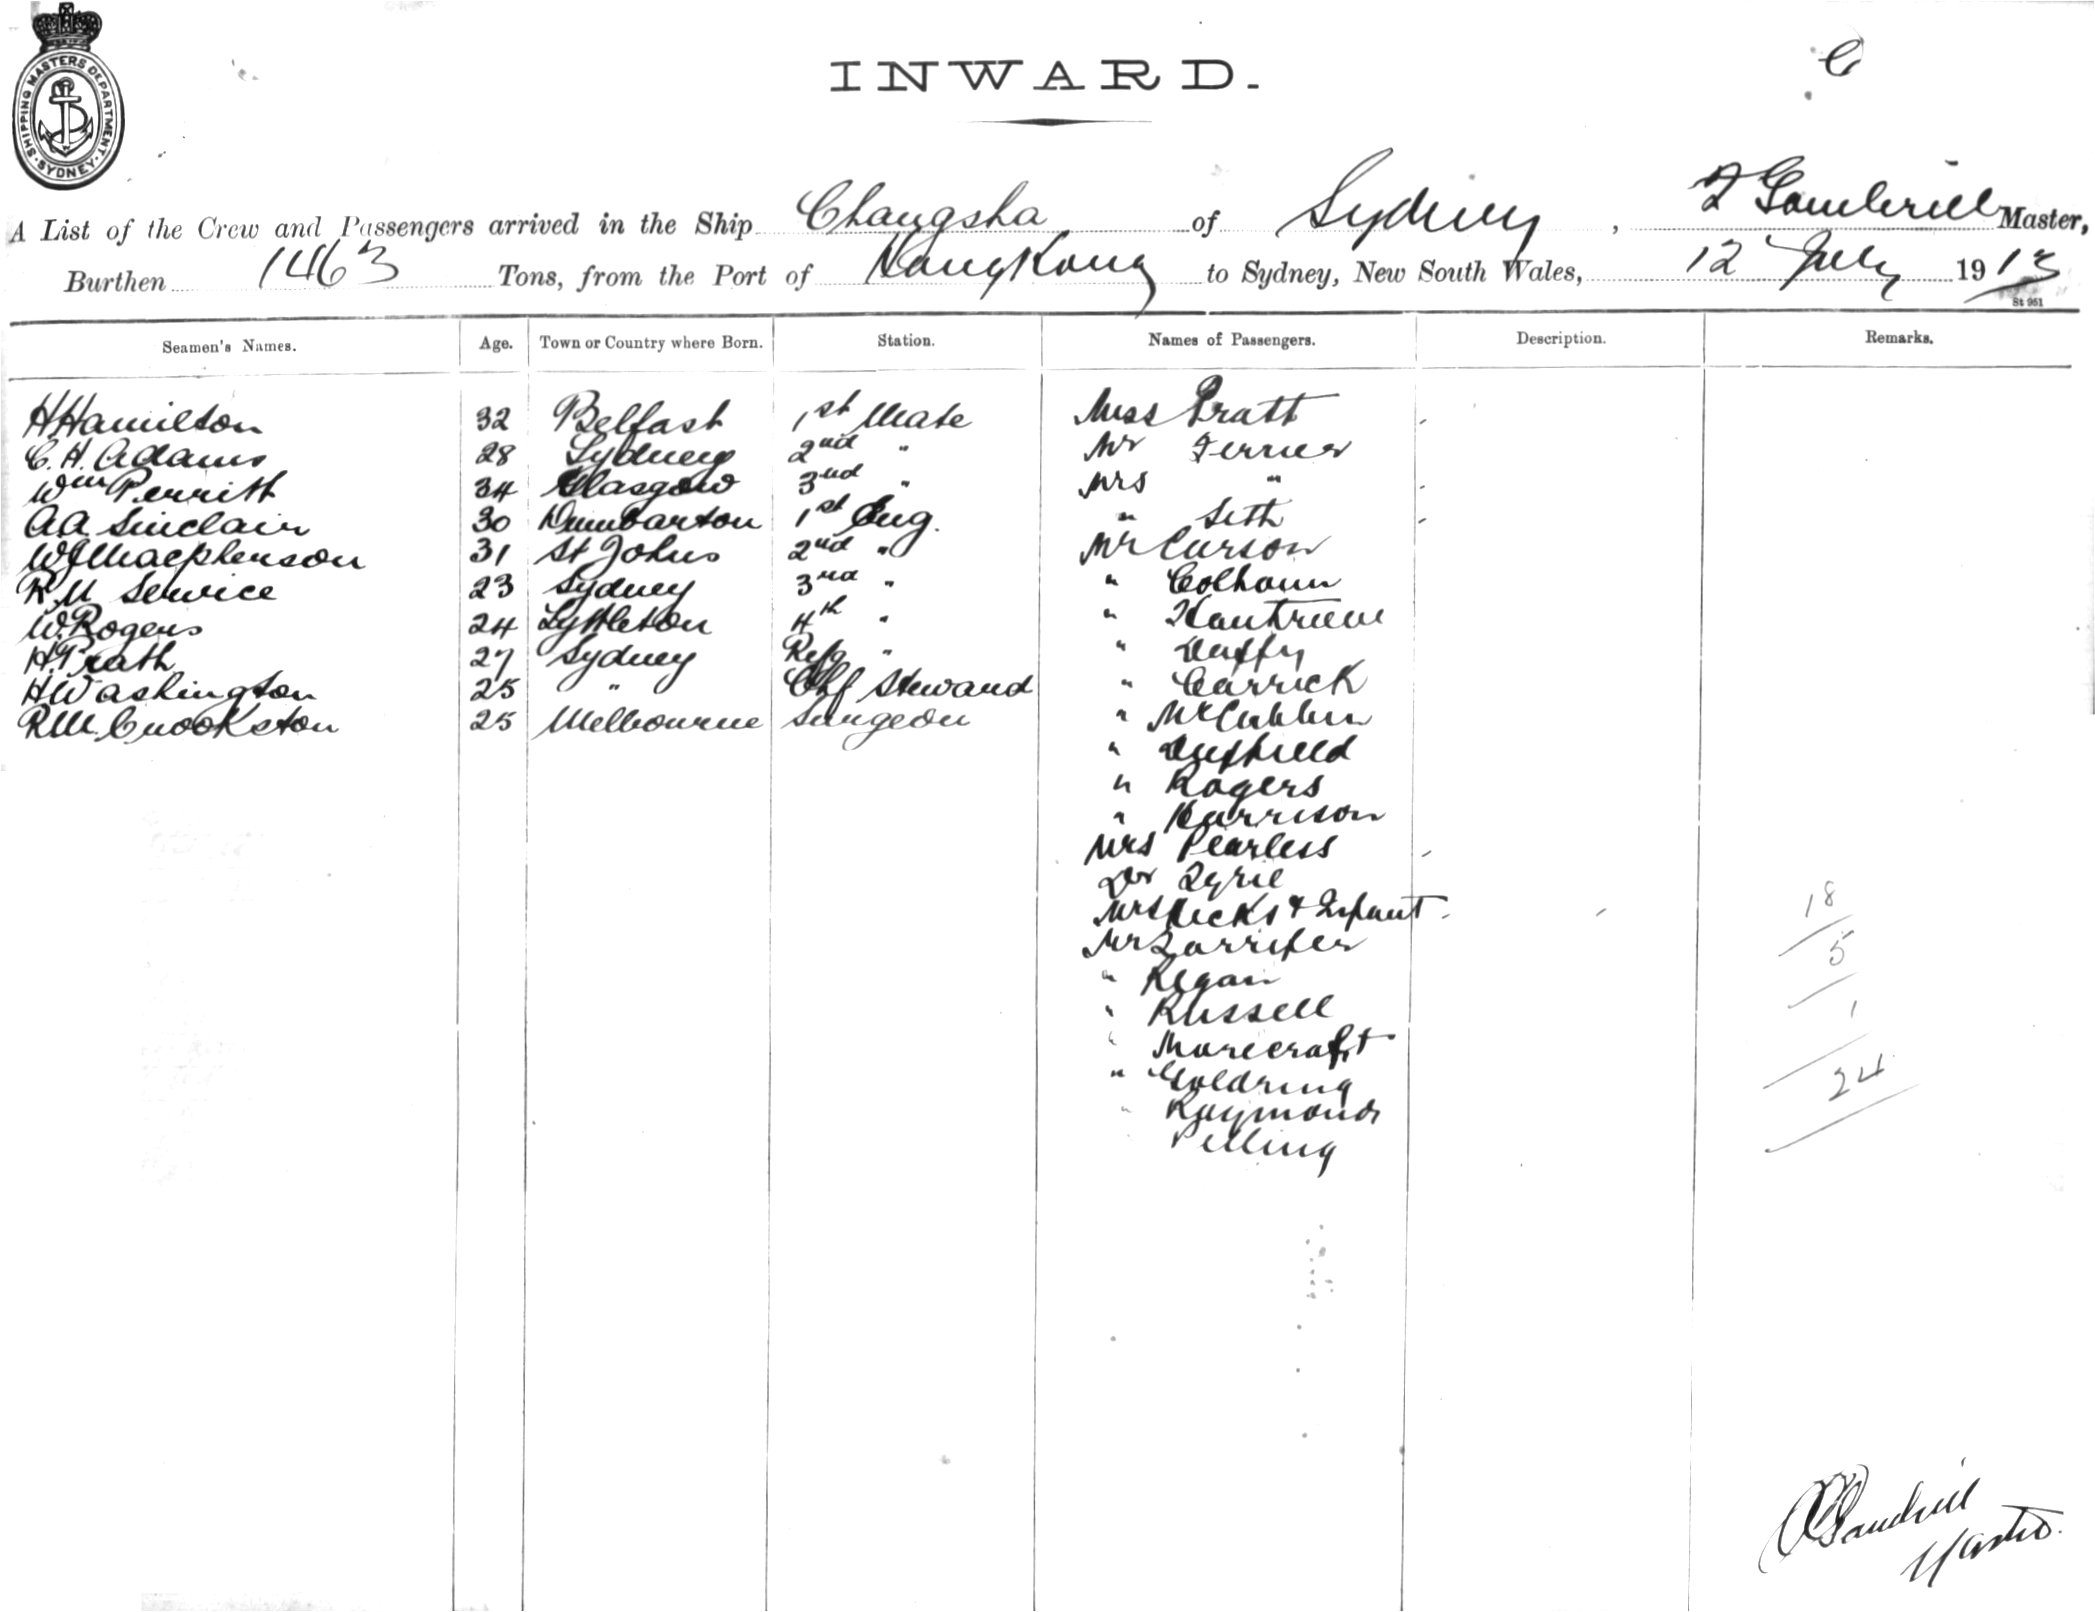 SHIPPING MASTERS DEPARTMENT. SYDNEY.
INWARD.
A List of the Crew and Passengers arrived in the Ship Changsha of Sydney, Gambrill Master,
Burthen 1463 Tons, from the Port of Hong Kong to Sydney, New South Wales, 12 July 1913
St 951
Seamen's Names. Age. Town or Country where Born. Station. Names of Passengers. Description. Remarks.
H Hamilton 32 Belfast 1st Mate Miss Pratt
C. H. Adams 28 Sydney 2nd " Mr Ferrier
Wm Perrith 34 Glasgow 3rd " Mrs "
A A Sinclair 30 Dumbarton 1st Eng. " Seth
W J Macpherson 31 St Johns 2nd " Mr Curson
R M Service 23 Sydney 3rd " " Colhoun
W. Rogers 24 Lyttleton 4th "
H. Prath 27 Sydney Refg " " Duffy
H Washington 25 " Chf Steward " Carrick
R. M. Crookston 25 Melbourne Surgeon " McCubbin
" Duffield
" Rogers
" Harrison
Mrs Pearless
Dr
Mrs Hicks & Infant
Mr
" Regan
" Russell
" Morecraft
" Goldring
" Raymond
Pelling
18
5
1
24
Gambrill
Master.